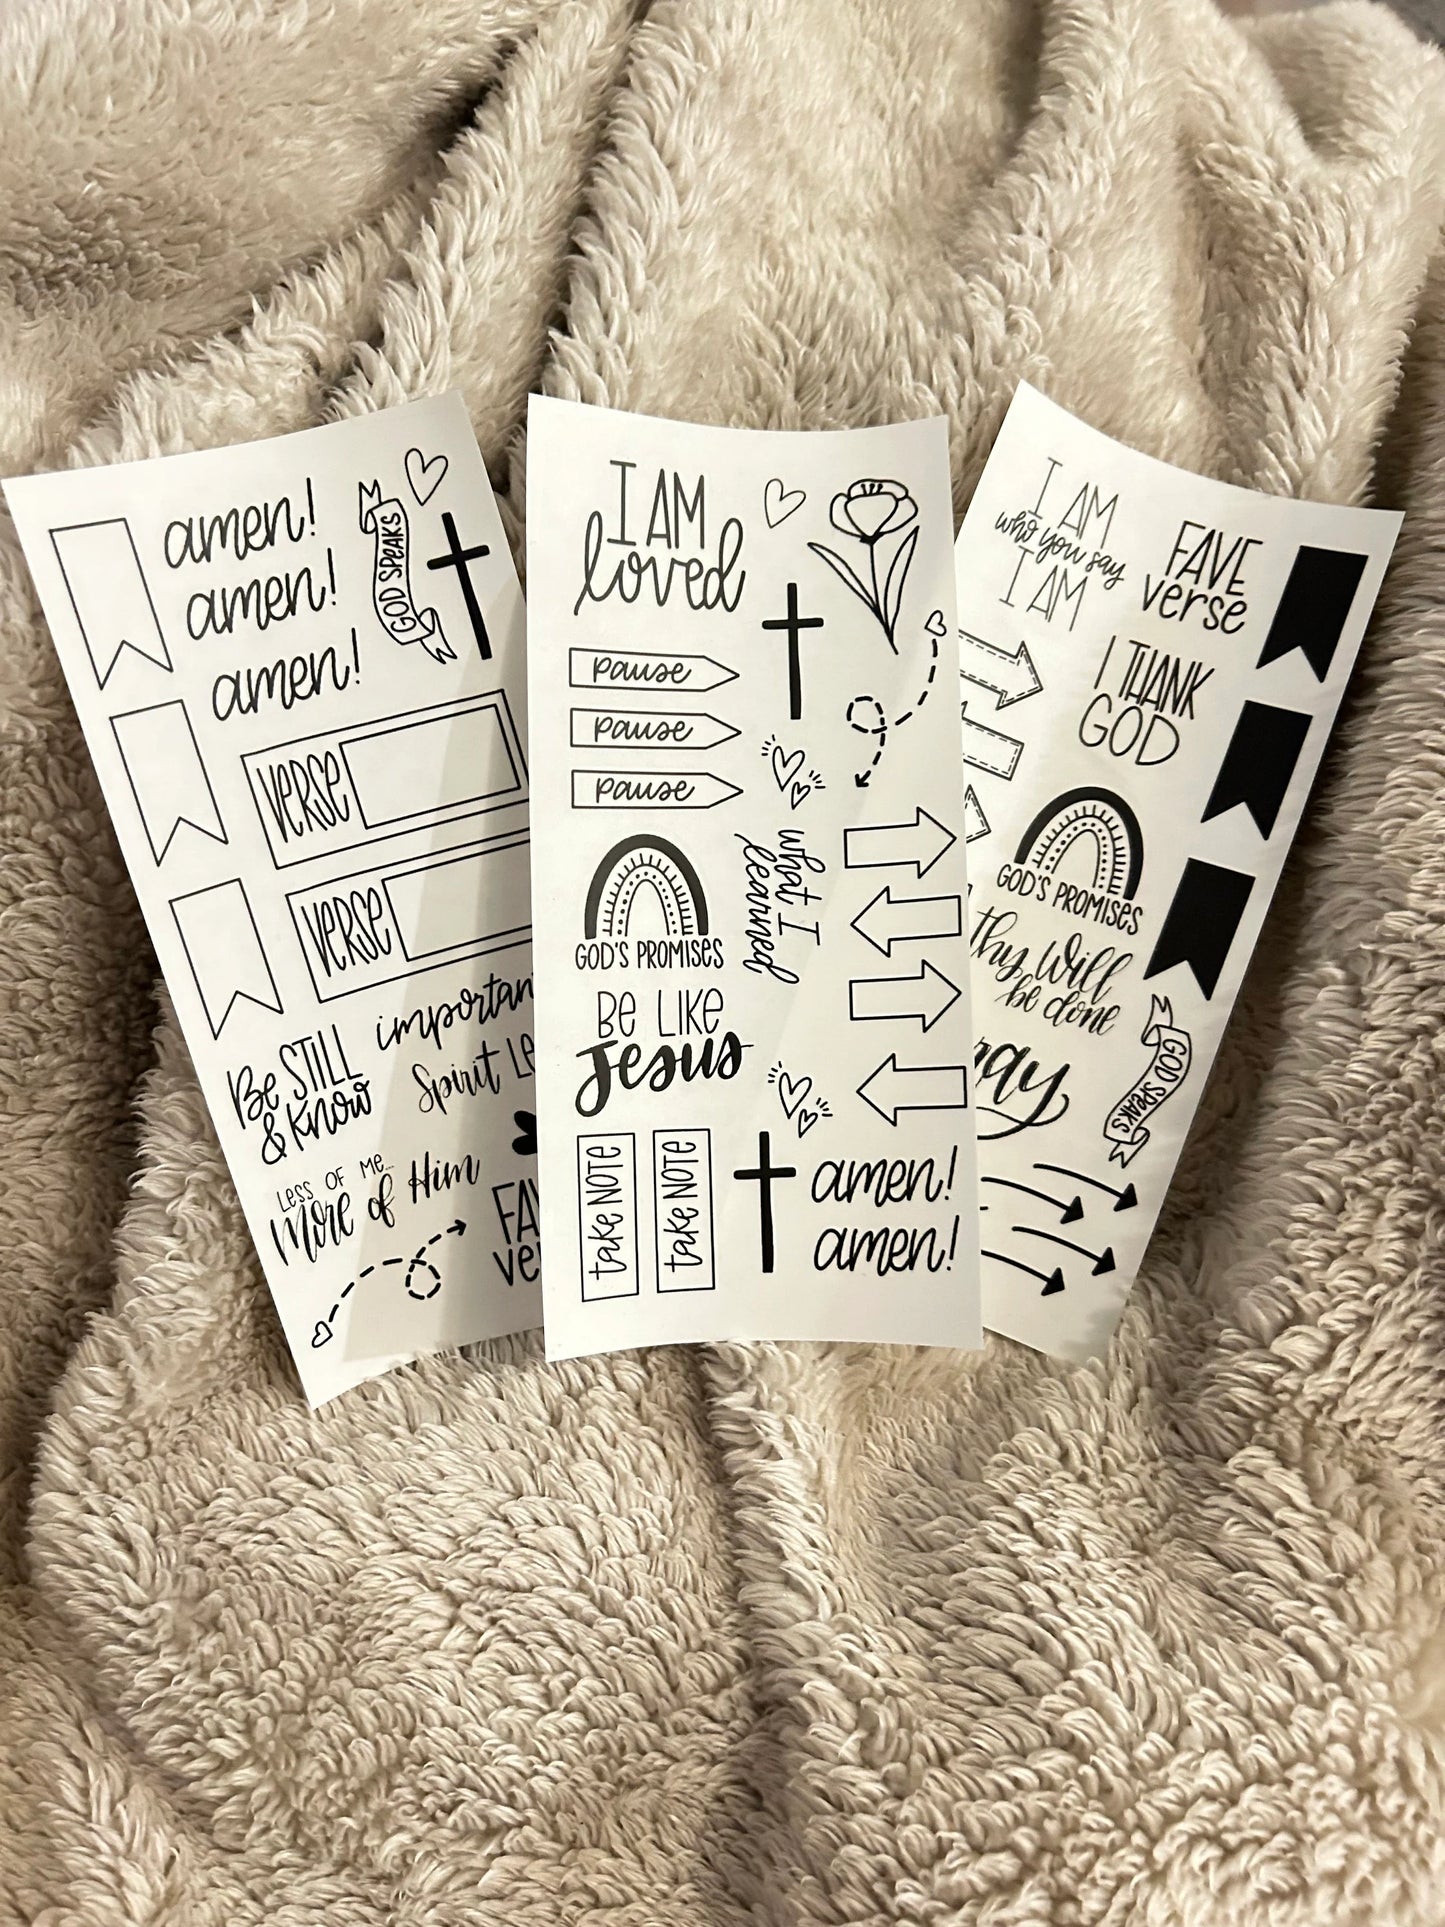 amen!
amen!
amen!
GOD SPEAKS
VERSE
VERSE
Be STILL
& Know
Less of me...
more of Him
I AM
loved
pause
pause
pause
GOD'S PROMISES
what I
learned
BE LIKE
Jesus
take NOTE
take NOTE
amen!
amen!
I AM
who you say
I AM
FAVE
verse
I THANK
GOD
GOD'S PROMISES
thy will
be done
GOD SPEAKS